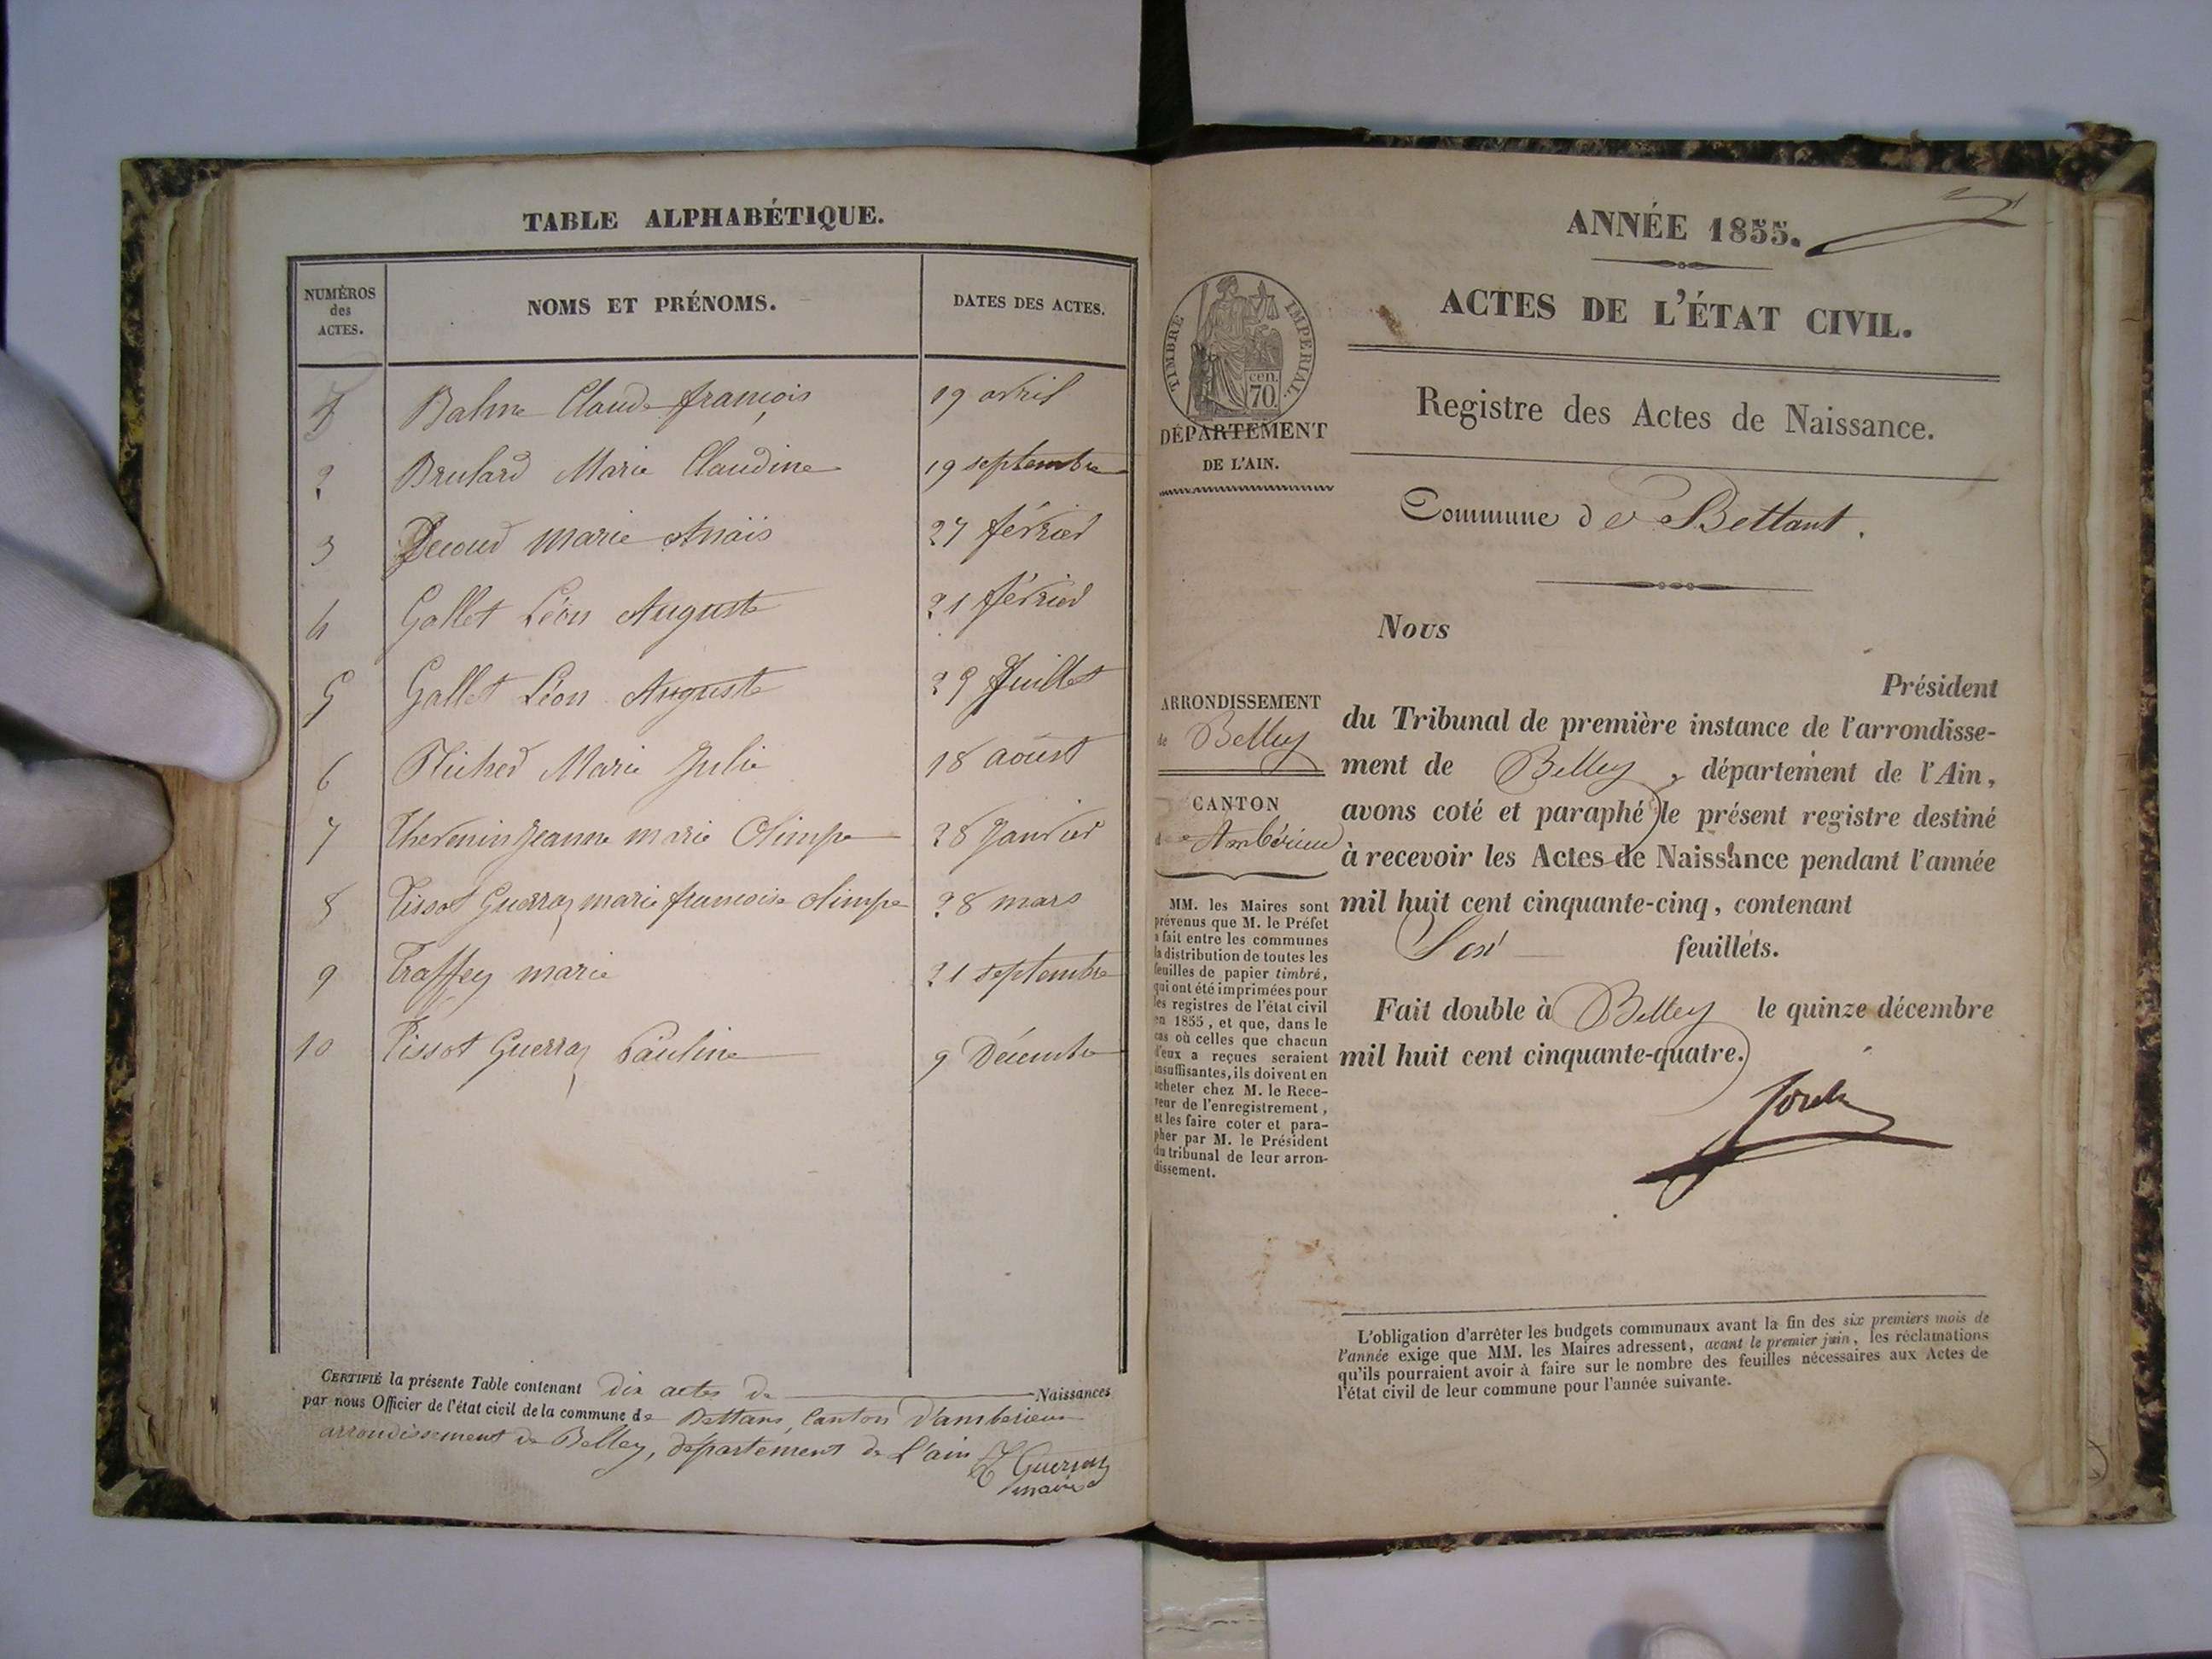 TABLE ALPHABÉTIQUE.
NUMÉROS des ACTES. NOMS ET PRÉNOMS. DATES DES ACTES.
1 Balme Claude françois 19 avril
2 Brulard Marie Claudine 19 septembre
3 Decoud marie Anaïs 27 février
4 Gallet Léon Auguste 21 février
5 Gallet Léon Auguste 29 Juillet
6 Marie Julie 18 aoust
7 Thevenin Jeanne marie Olimpe 28 Janvier
8 Tissot Guerraz marie francoise olimpe 28 mars
9 Traffey marie 21 septembre
10 Tissot Guerraz Pauline 9 Décembre
CERTIFIÉ la présente Table contenant dix actes de Naissances
par nous Officier de l'état civil de la commune de Bettans, Canton d'amberieux
arrondissement de Belley, département de L'ain
maire
ANNÉE 1855.
ACTES DE L'ÉTAT CIVIL.
TIMBRE IMPERIAL.
cen.
70.
DÉPARTEMENT
DE L'AIN.
Registre des Actes de Naissance.
Commune de Bettant.
Nous
Président
ARRONDISSEMENT
de Belley
CANTON
d'Ambérieu
du Tribunal de première instance de l'arrondisse-
ment de Belley, département de l'Ain,
avons coté et paraphé le présent registre destiné
à recevoir les Actes de Naissance pendant l'année
mil huit cent cinquante-cinq, contenant
Six feuillets.
Fait double à Belley le quinze décembre
mil huit cent cinquante-quatre.
MM. les Maires sont
prévenus que M. le Préfet
a fait entre les communes
la distribution de toutes les
feuilles de papier timbré,
qui ont été imprimées pour
les registres de l'état civil
en 1855, et que, dans le
cas où celles que chacun
d'eux a reçues seraient
insuffisantes, ils doivent en
acheter chez M. le Rece-
veur de l'enregistrement,
et les faire coter et para-
pher par M. le Président
du tribunal de leur arron-
dissement.
L'obligation d'arrêter les budgets communaux avant la fin des six premiers mois de
l'année exige que MM. les Maires adressent, avant le premier juin, les réclamations
qu'ils pourraient avoir à faire sur le nombre des feuilles nécessaires aux Actes de
l'état civil de leur commune pour l'année suivante.